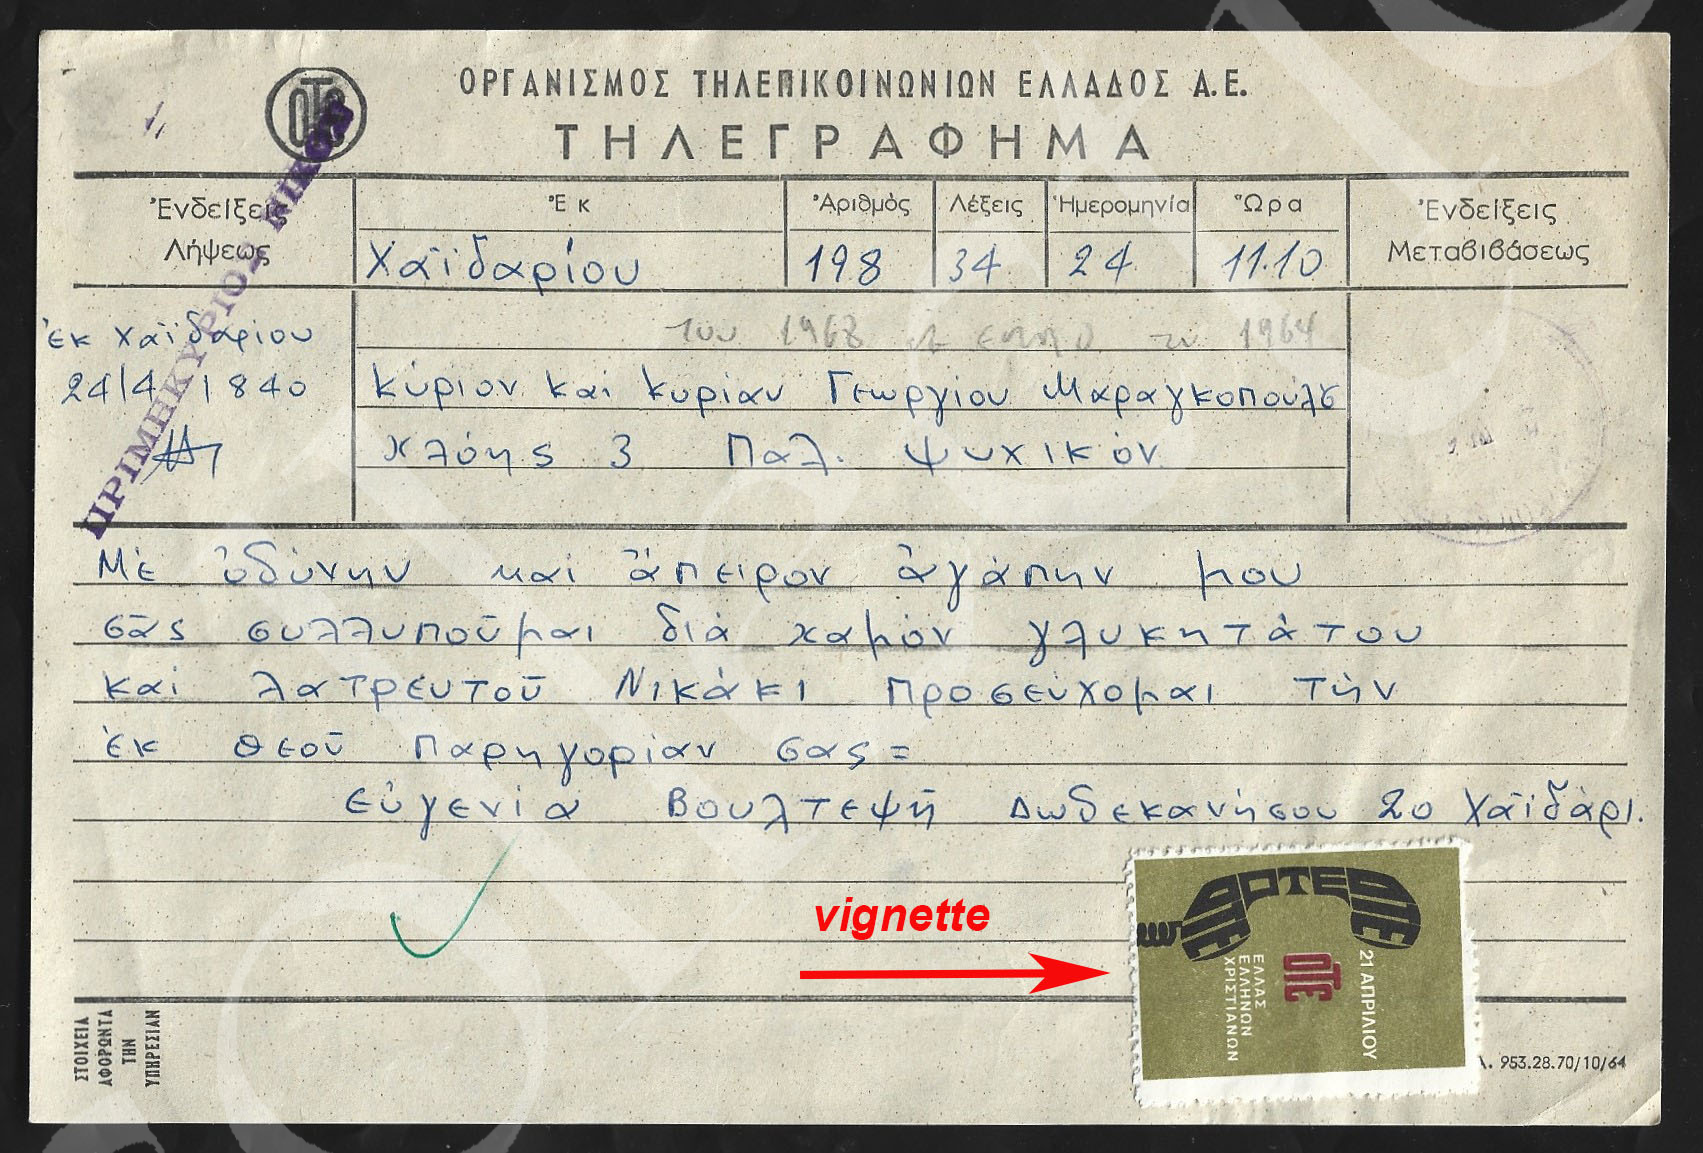 ΟΤΕ
ΟΡΓΑΝΙΣΜΟΣ ΤΗΛΕΠΙΚΟΙΝΩΝΙΩΝ ΕΛΛΑΔΟΣ Α.Ε.
ΤΗΛΕΓΡΑΦΗΜΑ
Ἐνδείξεις Λήψεως
Ἐκ
Ἀριθμός
Λέξεις
Ἡμερομηνία
Ὥρα
Ἐνδείξεις Μεταβιβάσεως
Χαϊδαρίου
198
34
24
11.10
ΠΡΙΜΗΚΥΡΙΟΣ ΝΙΚΟΣ
ἐκ Χαϊδαρίου
24/4 1840
του 1968 1964
κύριον καὶ κυρίαν Γεωργίου Μαραγκοπούλου
Χλόης 3 Παλ. Ψυχικόν
Μὲ ὀδύνην καὶ ἄπειρον ἀγάπην μου
σᾶς συλλυποῦμαι διὰ χαμὸν γλυκητάτου
καὶ λατρευτοῦ Νικάκι Προσεύχομαι τὴν
ἐκ Θεοῦ Παρηγορίαν σας =
Εὐγενία Βουλτεψῆ Δωδεκανήσου 20 Χαϊδάρι.
vignette
ΟΤΕ ΟΤΕ ΟΤΕ
21 ΑΠΡΙΛΙΟΥ
ΟΤΕ
ΕΛΛΑΣ
ΕΛΛΗΝΩΝ
ΧΡΙΣΤΙΑΝΩΝ
ΣΤΟΙΧΕΙΑ
ΑΦΟΡΩΝΤΑ
ΤΗΝ
ΥΠΗΡΕΣΙΑΝ
953.28.70/10/64